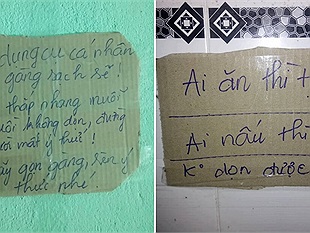 dụng cụ cá nhân
gàng sạch sẽ!
thắp nhang muỗi
không dọn, đừng
mất ý thức!
gọn gàng, sẽn ý
thức nhé!
Ai ăn thì t
Ai nấu thì
K° dọn được